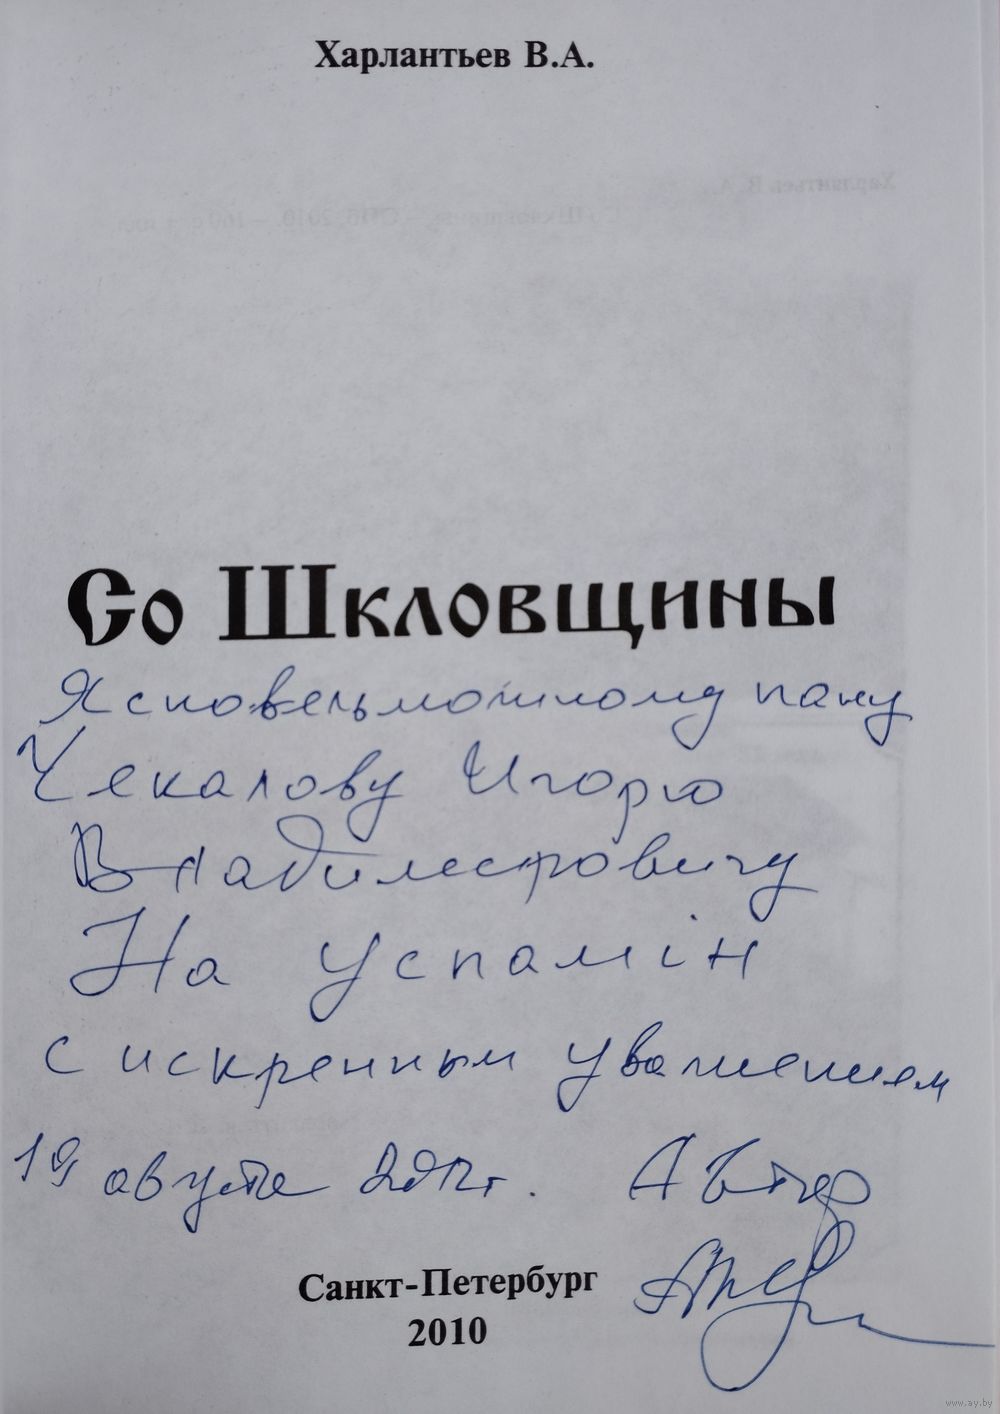 Харлантьев В.А.
Со Шкловщины
Ясновельможному пану
Чекалову Игорю
Владимировичу
На успамін
с искренным уважением
19 августа 2012г. Автор
Санкт-Петербург
2010
www.ay.by